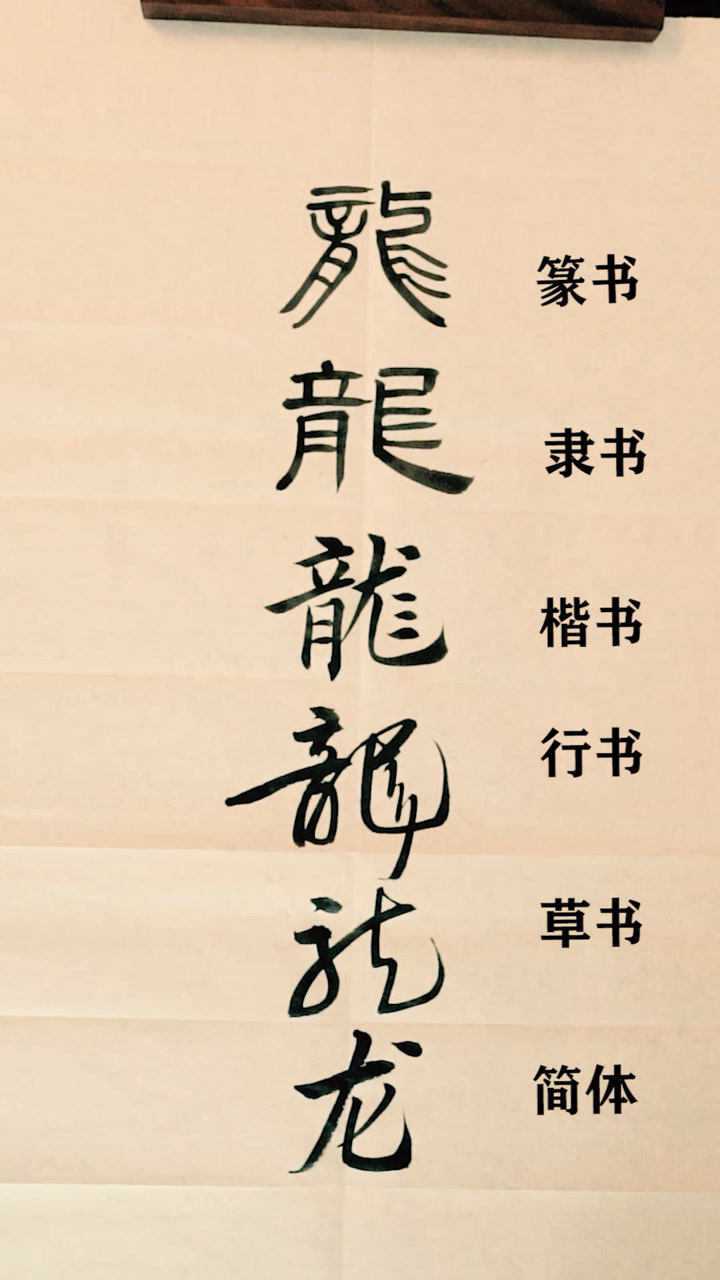 龍 篆书
龍 隶书
龍 楷书
龍 行书
龍 草书
龙 简体